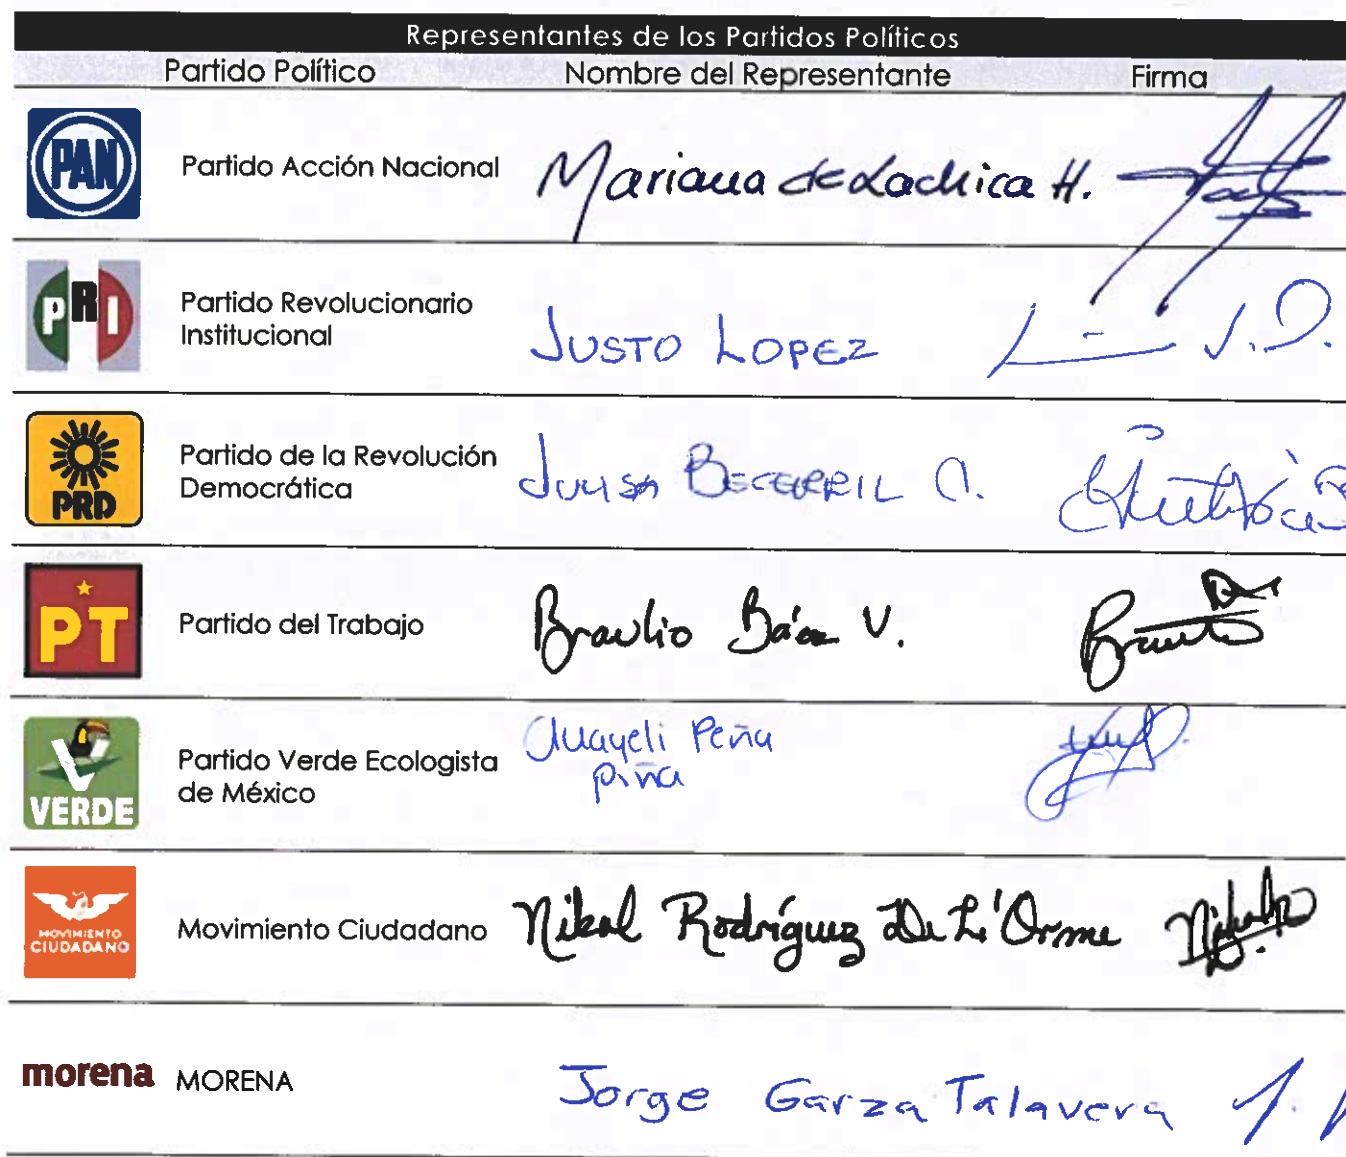 Representantes de los Partidos Políticos
Partido Político Nombre del Representante Firma
PAN Partido Acción Nacional Mariana de Lachica H.
PRI Partido Revolucionario
Institucional JUSTO LOPEZ J.D.
PRD Partido de la Revolución
Democrática BECERRIL
PT Partido del Trabajo Braulio Báez V.
VERDE Partido Verde Ecologista
de México Peña
Piña
MOVIMIENTO
CIUDADANO Movimiento Ciudadano Nikol Rodríguez De L'Orme
morena MORENA Jorge Garza Talavera